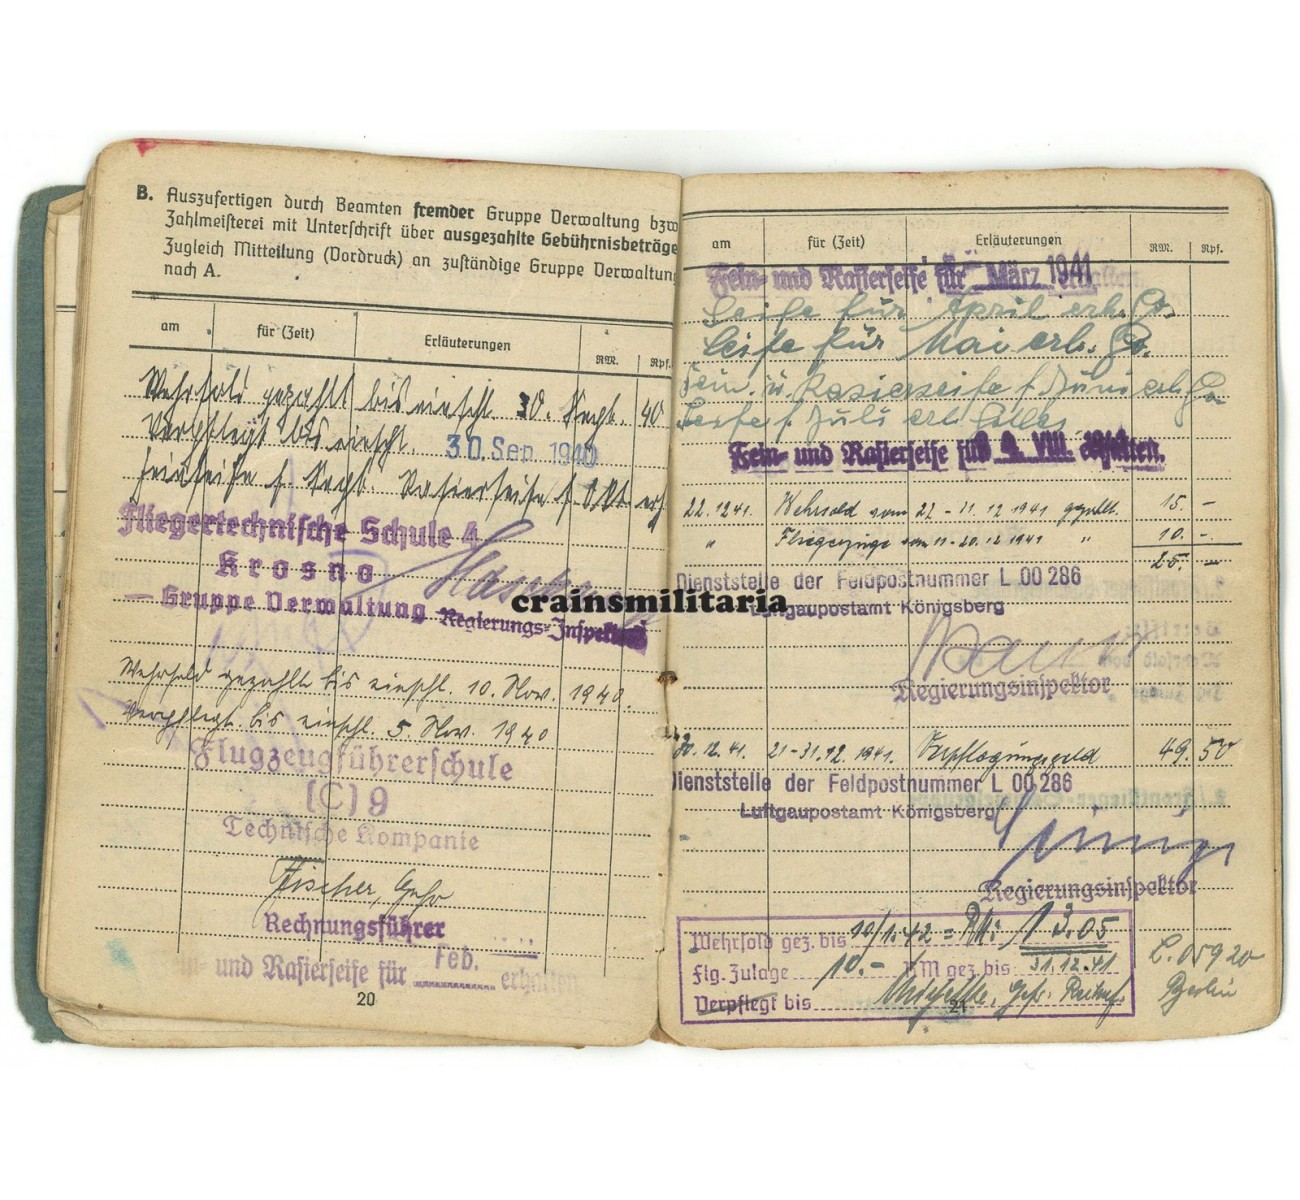 B. Auszufertigen durch Beamten fremder Gruppe Verwaltung bzw
Zahlmeisterei mit Unterschrift über ausgezahlte Gebührnisbeträge
Zugleich Mitteilung (Vordruck) an zuständige Gruppe Verwaltung
nach A.
am für (Zeit) Erläuterungen RM. Rpf.
Wehrsold gezahlt bis einschl. 30. Sept. 40
Verpflegt bis einschl. 30. Sep. 1940
Feinseife f. Sept. Rasierseife f. Okt. erh.
Fliegertechnische Schule 4
Krosno
— Gruppe Verwaltung
Regierungs-Inspektor
Wehrsold gezahlt bis einschl. 10. Nov. 1940.
Verpflegt bis einschl. 5. Nov. 1940
Flugzeugführerschule
(C) 9
Technische Kompanie
Fischer, Gefr
Rechnungsführer
Fein- und Rasierseife für Feb. erhalten
20
am für (Zeit) Erläuterungen RM. Rpf.
Fein- und Rasierseife für März 1941 erhalten.
Seife für April erh. Go.
Seife für Mai erh. Go.
Fein. u. Rasierseife f. Juni erh. Go
Seife f. Juli erh.
Fein- und Rasierseife für VIII. erhalten.
22.12.41. Wehrsold vom 1941 gezahlt. 15. –
" Fliegerzulage vom 11-20.12.1941 " 10. –
25. –
Dienststelle der Feldpostnummer L 00 286
Luftgaupostamt Königsberg
crainsmilitaria
Regierungsinspektor
30.12.41. 21-31.12.1941. Verpflegungsgeld 49.50
Dienststelle der Feldpostnummer L 00 286
Luftgaupostamt Königsberg
Regierungsinspektor
Wehrsold gez. bis 10/1.42 = RM: 13.05
Flg. Zulage 10.- RM gez bis 31.12.41
Verpflegt bis
L.05920
Berlin
21